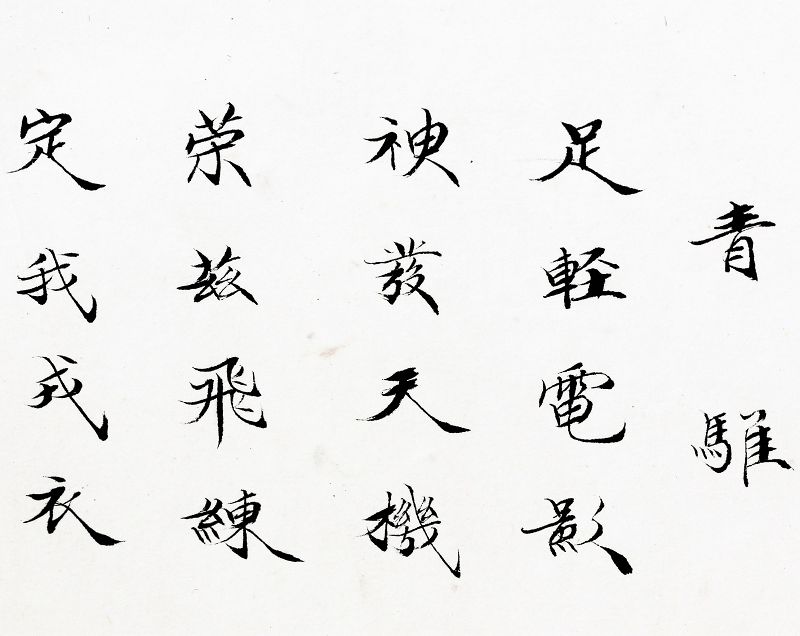 青騅
足軽電影
神發天機
荣兹飛練
定我戎衣